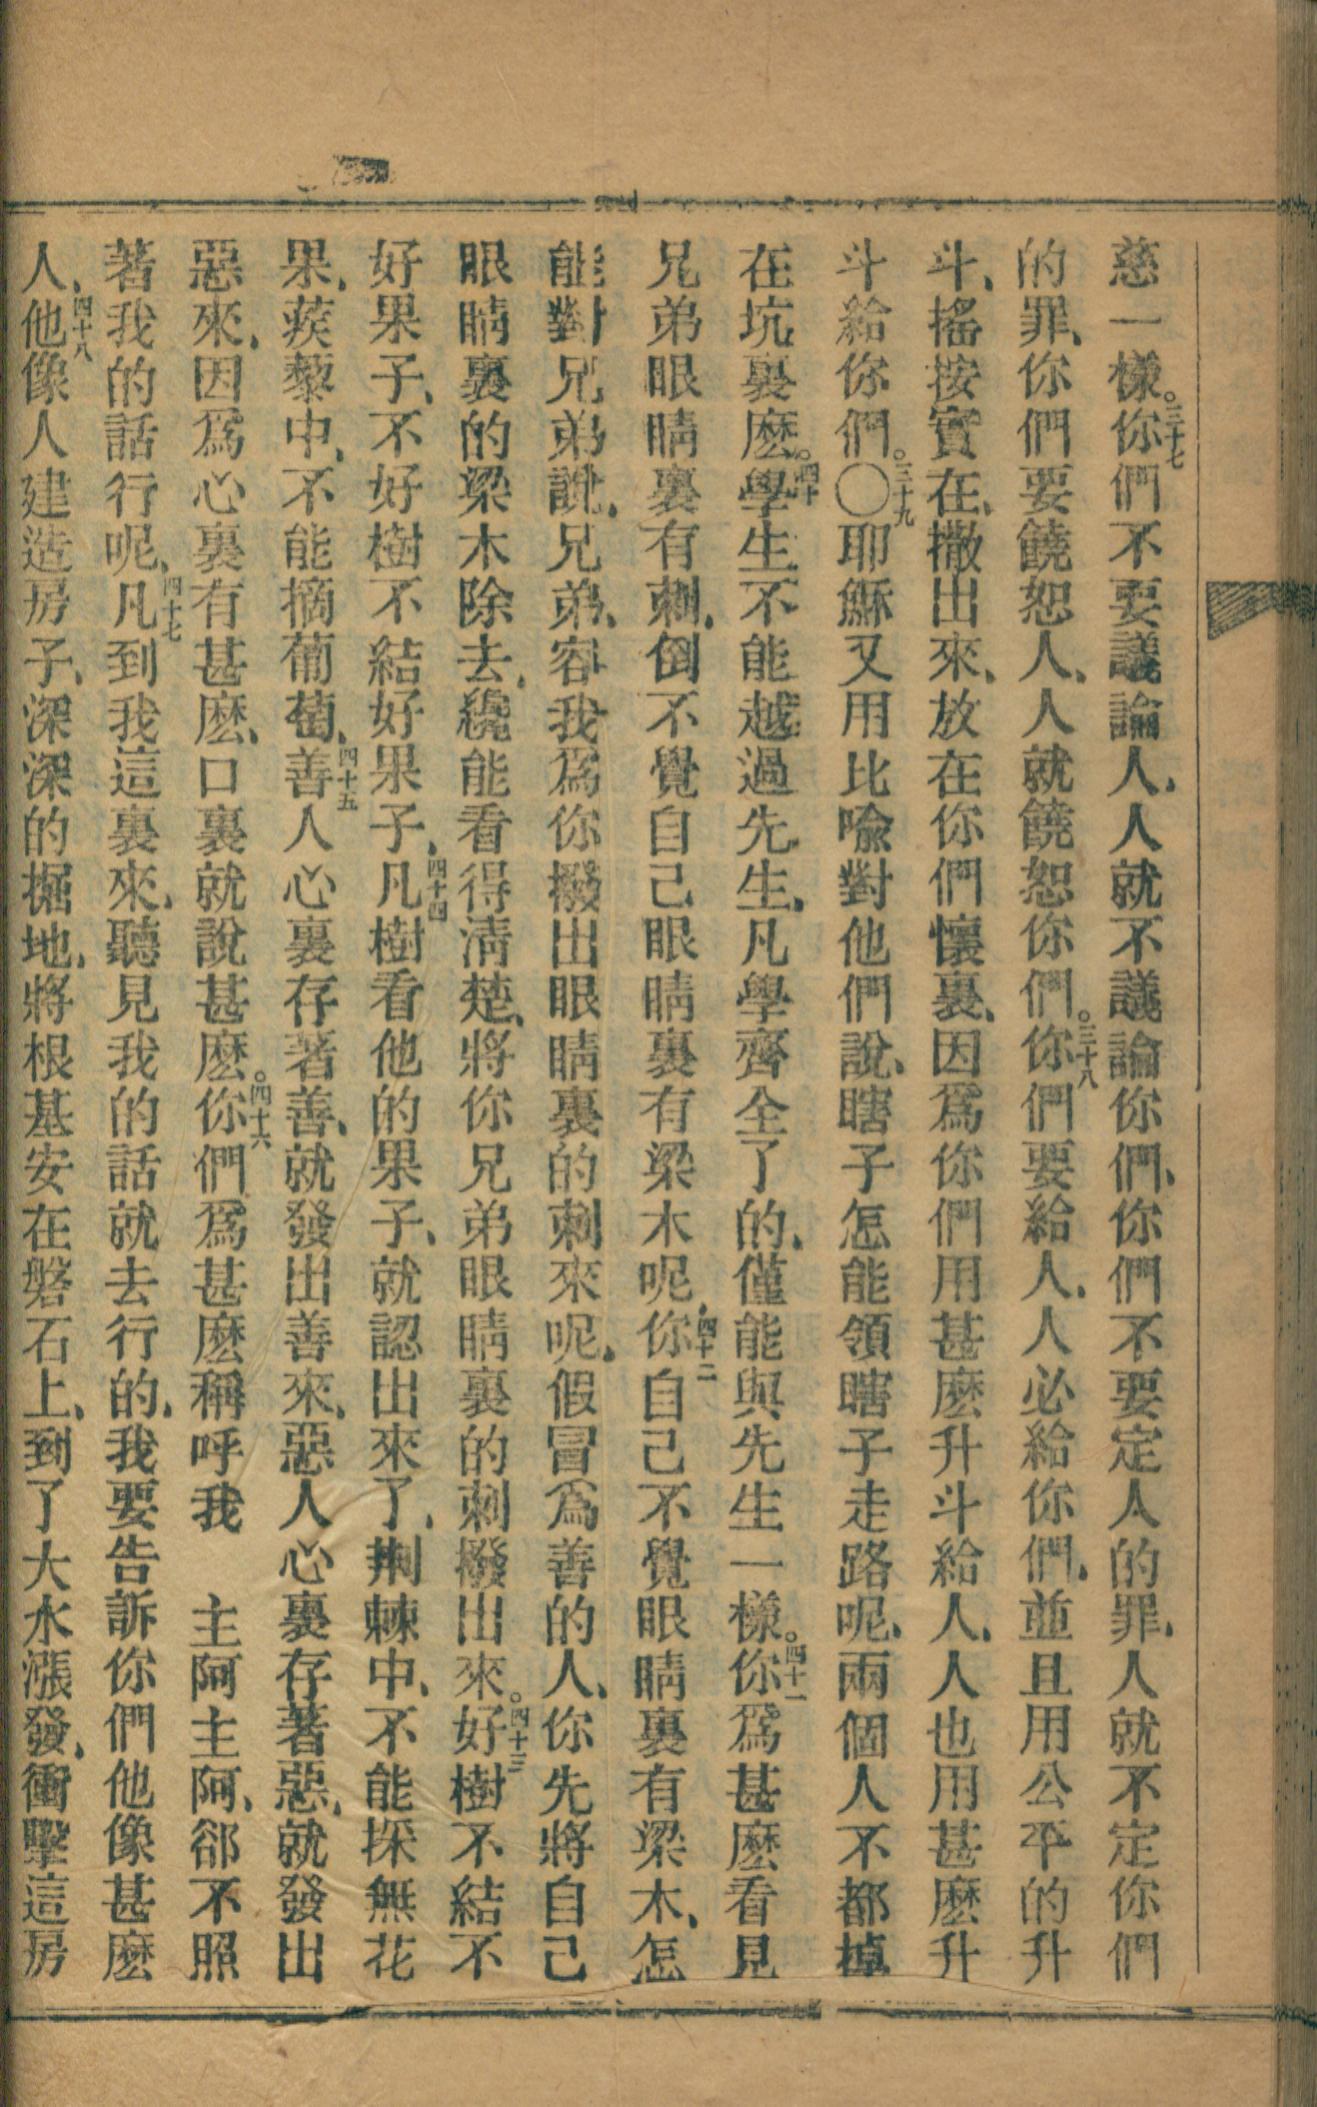 慈一樣。三十七你們不要議論人、人就不議論你們、你們不要定人的罪、人就不定你們
的罪、你們要饒恕人、人就饒恕你們。三十八你們要給人、人必給你們、並且用公平的升
斗、搖按實在、撒出來、放在你們懷裏、因爲你們用甚麽升斗給人、人也用甚麽升
斗給你們。三十九〇耶穌又用比喻對他們說、瞎子怎能領瞎子走路呢、兩個人不都掉
在坑裏麽。四十學生不能越過先生、凡學齊全了的、僅能與先生一樣。四十一你爲甚麽看見
兄弟眼睛裏有刺、倒不覺自己眼睛裏有梁木呢、四十二你自己不覺眼睛裏有梁木、怎
能對兄弟說、兄弟、容我爲你撥出眼睛裏的刺來呢、假冒爲善的人、你先將自己
眼睛裏的梁木除去、纔能看得淸楚、將你兄弟眼睛裏的刺撥出來。四十三好樹不結不
好果子、不好樹不結好果子、四十四凡樹看他的果子、就認出來了、荆棘中、不能採無花
果、蒺藜中、不能摘葡萄、四十五善人心裏存著善、就發出善來、惡人心裏存著惡、就發出
惡來、因爲心裏有甚麽、口裏就說甚麽。四十六你們爲甚麽稱呼我　主阿主阿、卻不照
著我的話行呢、四十七凡到我這裏來、聽見我的話就去行的、我要告訴你們他像甚麽
人、四十八他像人建造房子、深深的掘地、將根基安在磐石上、到了大水漲發、衝擊這房